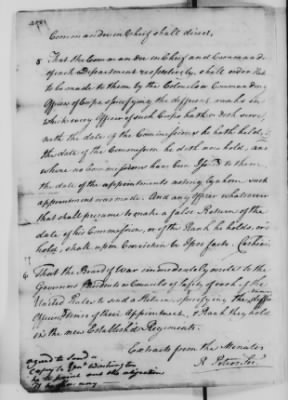 Commander in Chief shall direct.
5 That the Commander in Chief and Commander
of each Department respectively shall order Ret
to be made to them by the Colonel or Commandin
Officer of Corps specifying the different ranks in
which every Officer of such Corps hath or doth serve
with the date of the Commissions he hath held,
the date of the Commission he doth now hold, and
where no Commissions have been Issd. to them
the date of the appointments noting by whom such
appointment was made. And any Officer whatsoever
that shall presume to make a false Return of the
date of his Commission, or of the Rank he holds, or
held, shall upon Conviction be Ipso facto Cashier
6 That the Board of War immediately write to the
Governors Presidents or Councils of Safety of each of the
United States to send a Return, specifying the
Officers, times of their Appointment, & Rank they hold
in the new Establish'd Regiments.
Extracts from the Minutes
R. Peters Sec.
agreed to send a
Copy to Genl Washington
to be printed and the